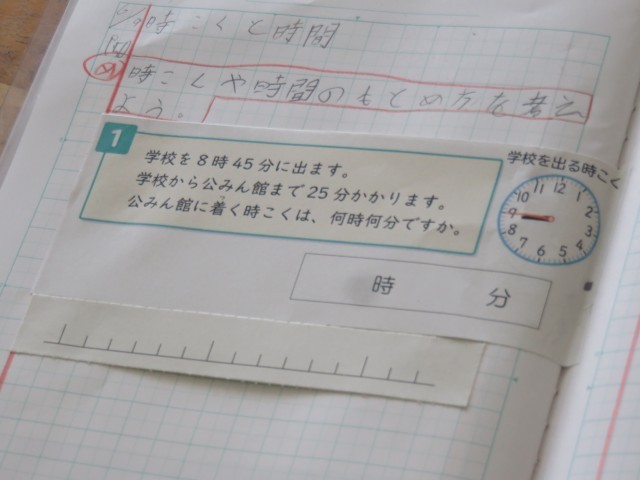 時こくと時間
め 時こくや時間のもとめ方を考え
よう。
1
学校を8時45分に出ます。
学校から公みん館まで25分かかります。
公みん館に着く時こくは、何時何分ですか。
学校を出る時こく
12
11 1
10 2
9 3
8 4
7 5
6
時 分